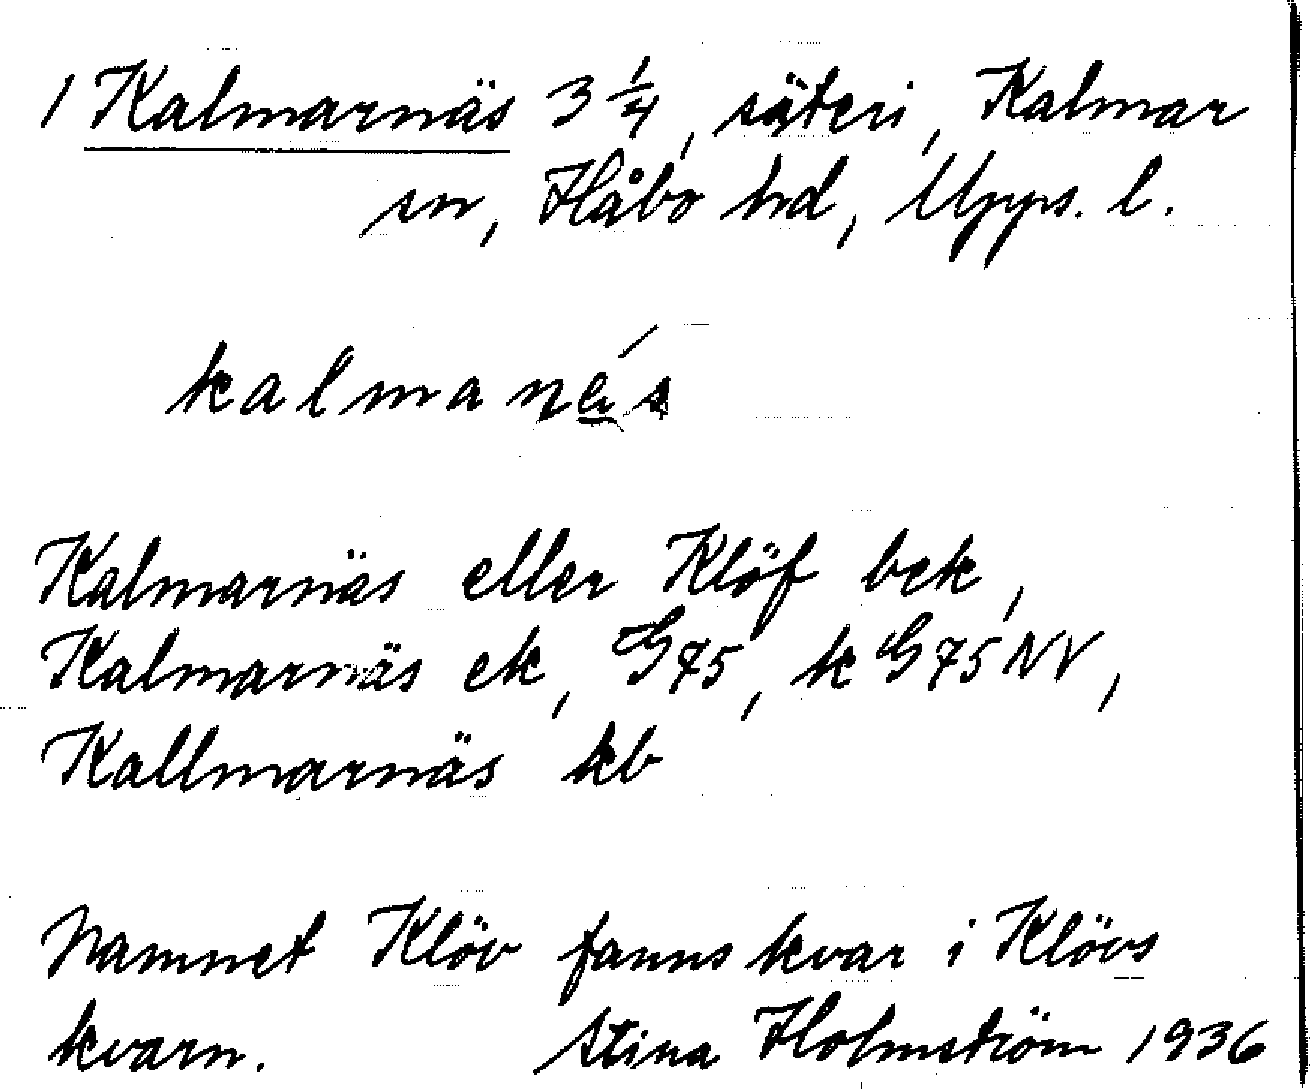 1 Kalmarnäs 3 1/4, säteri, Kalmar
sn, Håbo hd, Upps. l.
Kalmarnäs eller Klöf bek,
Kalmarnäs ek, G75, k G75NV,
Kallmarnäs kb
Namnet Klöv fanns kvar i Klövs
kvarn. Stina Holmström 1936